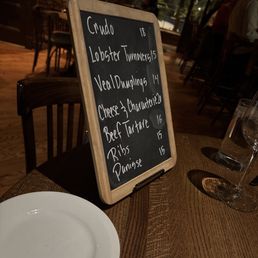 Crudo 18
Lobster Turnovers 15
Veal Dumplings 14
Cheese & Charcuterie
Beef Tartare 16
Ribs 15
Panisse 15